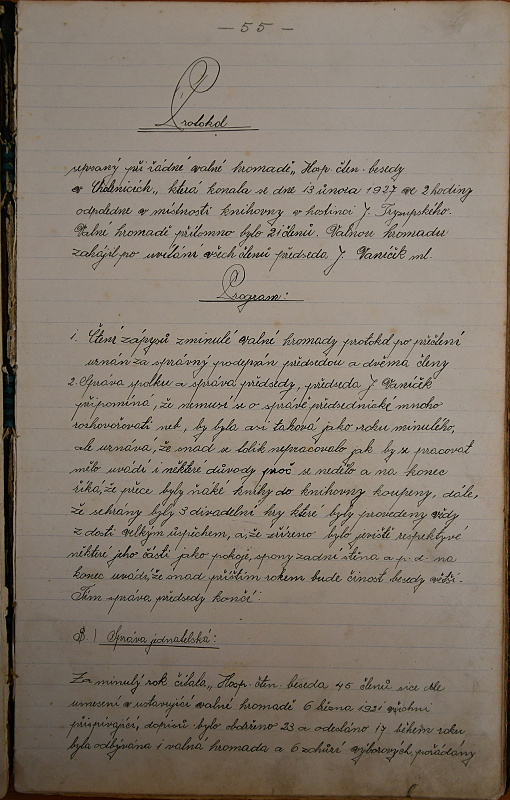 — 55 —
Protokol
sepsaný při řádné valné hromadě „Hosp. čten. besedy
v Cholenicích„ která konala se dne 13 února 1927 ve 2 hodiny
odpoledne v místnosti knihovny v hostinci J.
Valné hromadě přítomno bylo 21 členů. Valnou hromadu
zahájil po uvítání všech členů předseda J. Vaníček ml.
Program:
1. Čtení zápysů z minulé valné hromady protokol po přečtení
uznán za správný podepsán předsedou a dvěma členy
2. Správa spolku a správa předsedy, předseda J Vaníček
připomíná, že nemusí se o správě předsednické mnoho
rozhovořovati neb, by byla asi taková jako roku minulého,
ale uznává, že snad se tolik nepracovalo jak by se pracovat
mělo uvádí i některé důvody proč se nedělo a na konec
říká, že přece byly ňaké knihy do knihovny koupeny, dále,
že sehrány byly 3 divadelní hry které byly provedeny vždy
z dosti velkým úspěchem, a, že zřízeno bylo jeviště respektyvé
některé jeho části jako pokoje, spony zadní stěna a p. d. na
konec uvádí, že snad příštím rokem bude činost besedy větší.
Tím správa předsedy končí.
3.) Správa jednatelská:
Za minulý rok čítala „Hosp. čten. beseda 45 členů sice dle
usnesení v ustavující valné hromadě 6 března 1921 všichni
přispívající, dopisů bylo obdrženo 23 a odesláno 17. během roku
byla odbývána 1 valná hromada a 6 schůzí výborových, pořádány